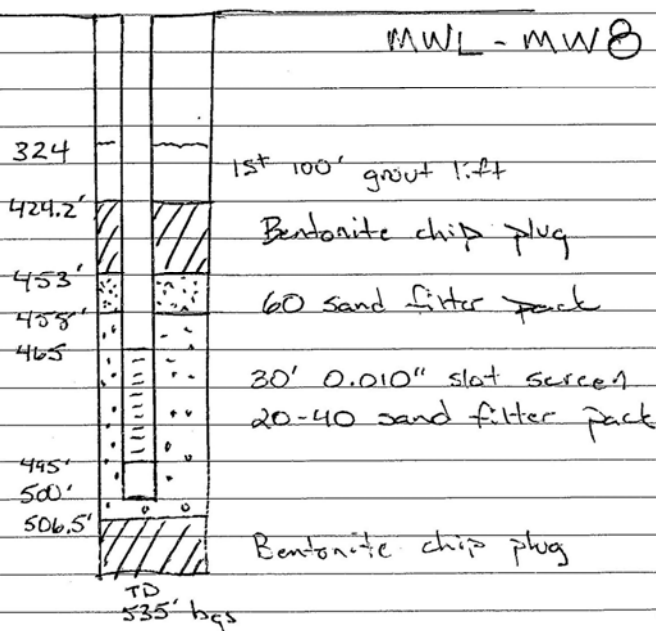 MWL-MW8
324
1st 100' grout lift
424.2'
Bentonite chip plug
453'
60 sand filter pack
458'
465
30' 0.010" slot screen
20-40 sand filter pack
495'
500'
506.5'
Bentonite chip plug
TD
535' bgs